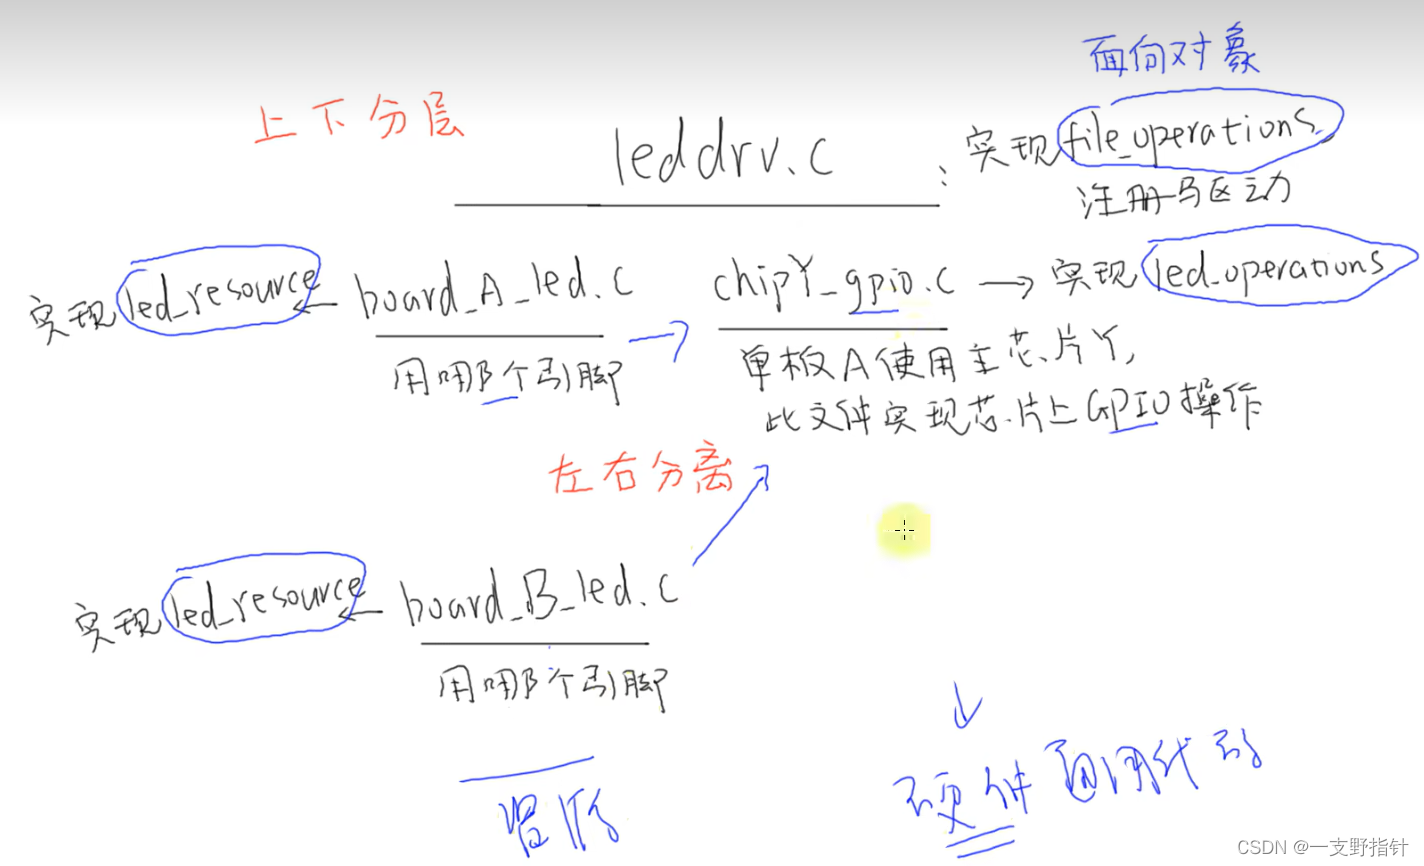 面向对象
上下分层
leddrv.c : 实现file_operations
注册驱动
实现led_resource ← board_A_led.c → chipY_gpio.c → 实现led_operations
用哪个引脚
单板A使用主芯片Y,
此文件实现芯片上GPIO操作
左右分离
实现led_resource ← board_B_led.c
用哪个引脚
硬件通用代码
CSDN @一支野指针